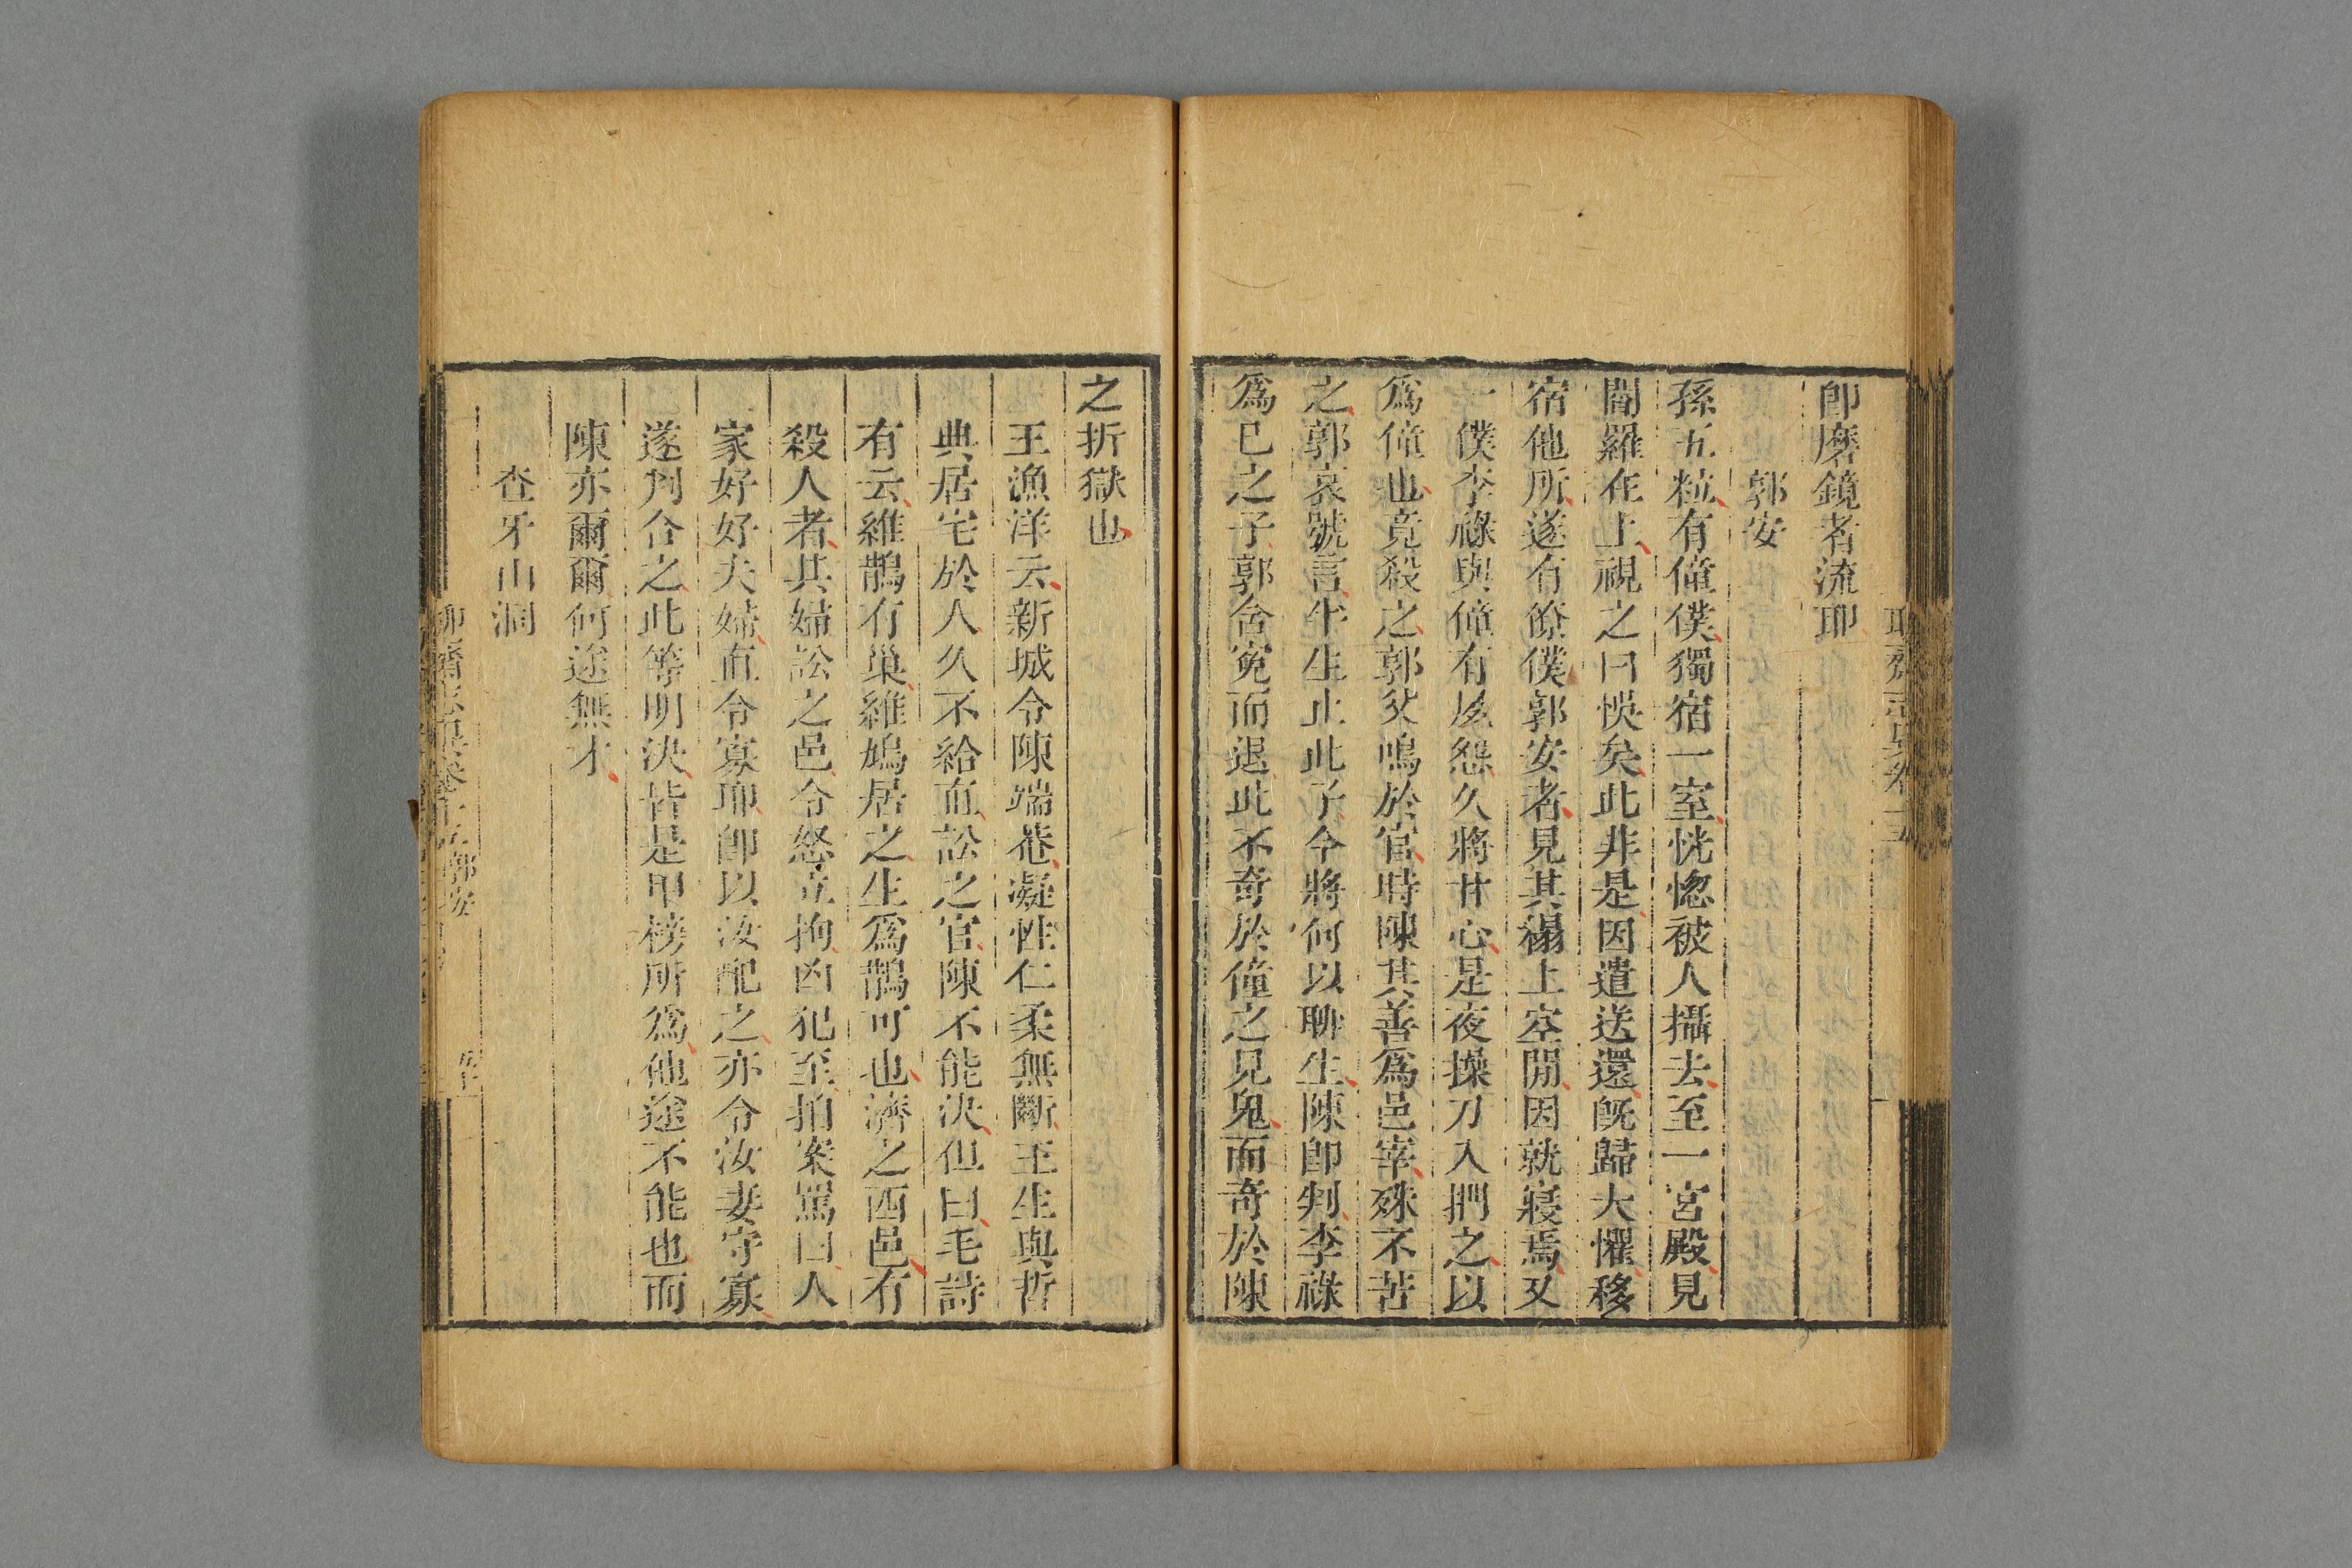 聊齋志異卷十五
卽磨鏡者流耶
郭安
孫五粒有僮僕獨宿一室恍惚被人攝去至一宮殿見
閻羅在上視之曰悞矣此非是因遣送還旣歸大懼移
宿他所遂有僚僕郭安者見其榻上空閒因就寢焉又
一僕李祿與僮有夙怨久將甘心是夜操刀入捫之以
爲僮也竟殺之郭父鳴於官時陳其善爲邑宰殊不苦
之郭哀號言半生止此子今將何以聊生陳卽判李祿
爲已之子郭含寃而退此不奇於僮之見鬼而奇於陳
之折獄也
王漁洋云新城令陳端菴凝性仁柔無斷王生與哲
典居宅於人久不給直訟之官陳不能決但曰毛詩
有云維鵲有巢維鳩居之生爲鵲可也濟之西邑有
殺人者其婦訟之邑令怒立拘凶犯至拍案罵曰人
家好好夫婦直令寡耶卽以汝配之亦令汝妻守寡
遂判合之此等明決皆是甲榜所爲他途不能也而
陳亦爾爾何途無才
查牙山洞
聊齋志異卷十五 郭安